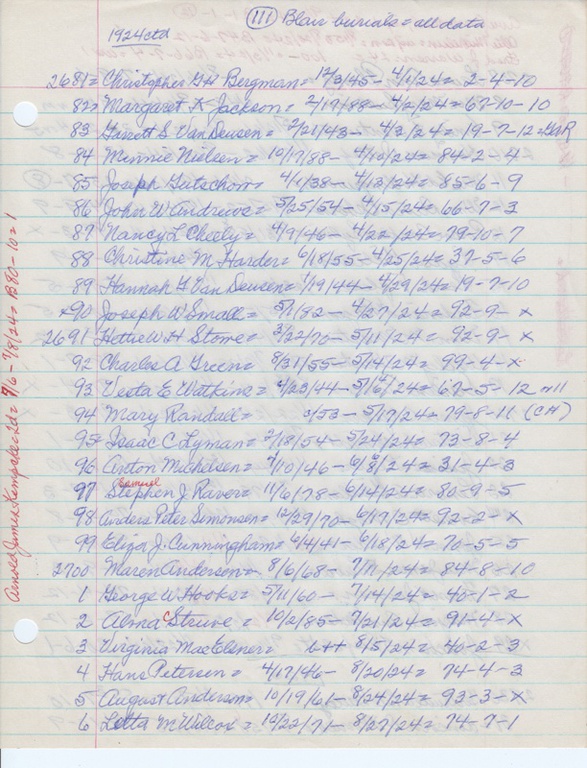 (111) Blair burials = all data
1924 ctd
2681 = Christopher G H Bergman = 12/3/45 - 4/1/24 = 2-4-10
82 = Margaret K Jackson = 2/17/88 - 4/2/24 = 67-10-10
83 Garrett S. Van Deusen = 2/21/43 - 4/3/24 = 19-7-12 = GAR
84 Minnie Nielsen = 10/17/88 - 4/10/24 = 84-2-4
85 Joseph Gutschow = 4/1/38 - 4/13/24 = 85-6-9
86 John W Andrews = 5/25/54 - 4/15/24 = 66-7-3
87 Nancy L Cheely = 4/9/46 - 4/22/24 = 79-10-7
88 Christine M Harder = 6/18/55 - 4/25/24 = 37-5-6
89 Hannah G Van Deusen = 1/19/44 - 4/29/24 = 19-7-10
x90 Joseph W Small = 5/1/82 - 4/27/24 = 92-9-x
2691 Hettie W H Stowe = 3/22/70 - 5/11/24 = 92-9-x
92 Charles A Green = 8/31/55 - 5/14/24 = 99-4-x
93 Vesta E Watkins = 4/23/44 - 5/16/24 = 67-5-12 = 11
94 Mary Randall = c/53 - 5/17/24 = 79-8-11 (CH)
95 = Isaac C Lyman = 2/18/54 - 5/24/24 = 73-8-4
96 Anton Michelsen = 2/10/46 - 6/8/24 = 31-4-3
97 Stephen Samuel J. Raver = 11/6/78 - 6/14/24 = 80-9-5
98 Anders Peter Simonsen = 12/29/70 - 6/17/24 = 92-2-x
99 Eliza J. Cunningham = 6/4/41 - 6/18/24 = 70-5-5
2700 Maren Anderson = 8/6/68 - 7/11/24 = 84-8-10
1 George W Hooks = 5/11/60 - 7/14/24 = 40-1-2
2 Alma C Struve = 10/2/85 - 7/21/24 = 91-4-x
3 Virginia Mac Elsner = b++ 8/5/24 = 40-2-3
4 Hans Petersen = 4/17/46 - 8/20/24 = 74-4-3
5 August Anderson = 10/19/61 - 8/24/24 = 93-3-x
6 Letta M Wilcox = 10/22/71 - 8/27/24 = 74-7-1
Arnold James = 7/6 - 7/8/24 = B80-10 = 1